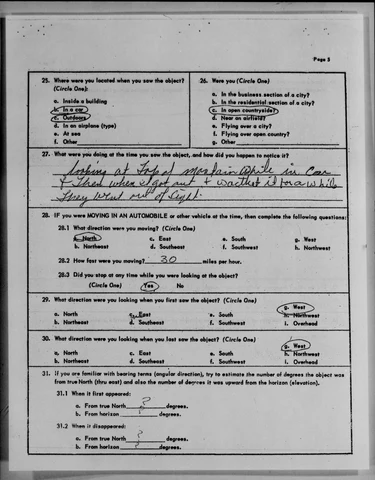 Page 5
25. Where were you located when you saw the object?
(Circle One):
a. Inside a building
b. In a car
c. Outdoors
d. In an airplane (type)
e. At sea
f. Other
26. Were you (Circle One)
a. In the business section of a city?
b. In the residential section of a city?
c. In open countryside?
d. Near an airfield?
e. Flying over a city?
f. Flying over open country?
g. Other
27. What were you doing at the time you saw the object, and how did you happen to notice it?
looking at Top of montain while in Car
+ Then when I got out + watched it for a while
They went out of sight.
28. IF you were MOVING IN AN AUTOMOBILE or other vehicle at the time, then complete the following questions:
28.1 What direction were you moving? (Circle One)
a. North c. East e. South g. West
b. Northeast d. Southeast f. Southwest h. Northwest
28.2 How fast were you moving? 30 miles per hour.
28.3 Did you stop at any time while you were looking at the object?
(Circle One) Yes No
29. What direction were you looking when you first saw the object? (Circle One)
a. North c. East e. South g. West
b. Northeast d. Southeast f. Southwest h. Northwest i. Overhead
30. What direction were you looking when you last saw the object? (Circle One)
a. North c. East e. South g. West
b. Northeast d. Southeast f. Southwest h. Northwest i. Overhead
31. If you are familiar with bearing terms (angular direction), try to estimate the number of degrees the object was
from true North (thru east) and also the number of degrees it was upward from the horizon (elevation).
31.1 When it first appeared:
a. From true North ? degrees.
b. From horizon ? degrees.
31.2 When it disappeared:
a. From true North ? degrees.
b. From horizon ? degrees.